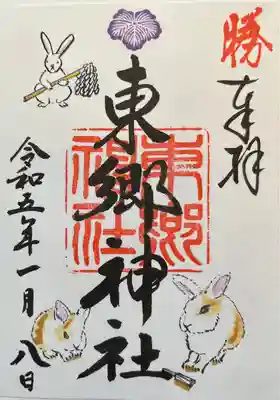 勝
奉拝
東郷神社
東郷
神社
令和五年一月八日